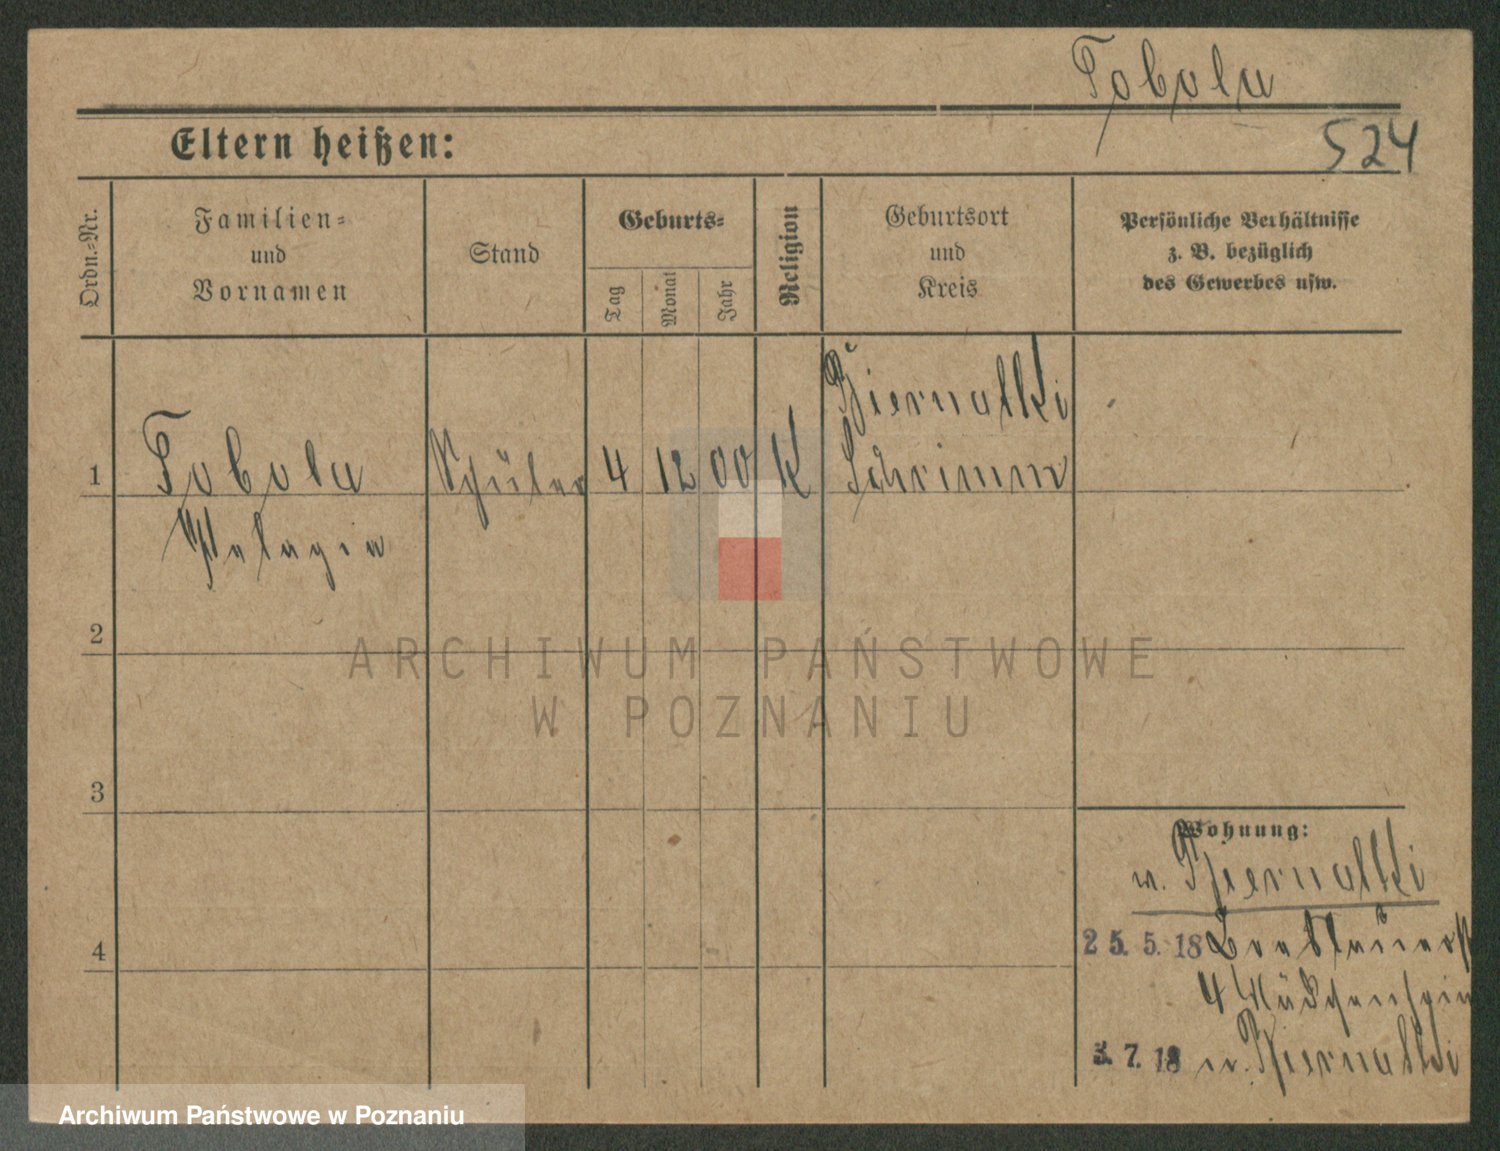 Tobola
Eltern heißen:
524
Ordn.-Nr.
Familien-
und
Vornamen
Stand
Geburts-
Tag
Monat
Jahr
Religion
Geburtsort
und
Kreis
Persönliche Verhältnisse
z. B. bezüglich
des Gewerbes usw.
Biernatki
1 Tobola Schüler 4 12 00 K Schrimm
Pelagia
2
ARCHIWUM PAŃSTWOWE
W POZNANIU
3
Wohnung:
n. Biernatki
25. 5. 18
4
4 Mädchenheim
3. 7. 18 n. Biernatki
Archiwum Państwowe w Poznaniu